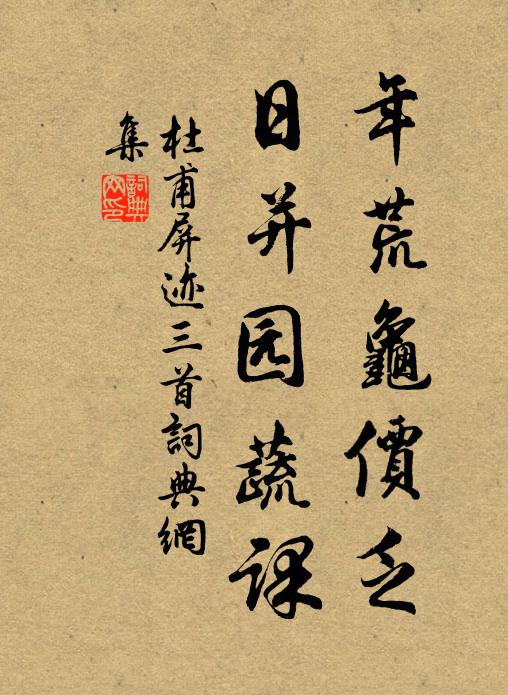 年荒龜價乏
日并园蔬课
杜甫屏迹三首詞典網
集
詞典网印